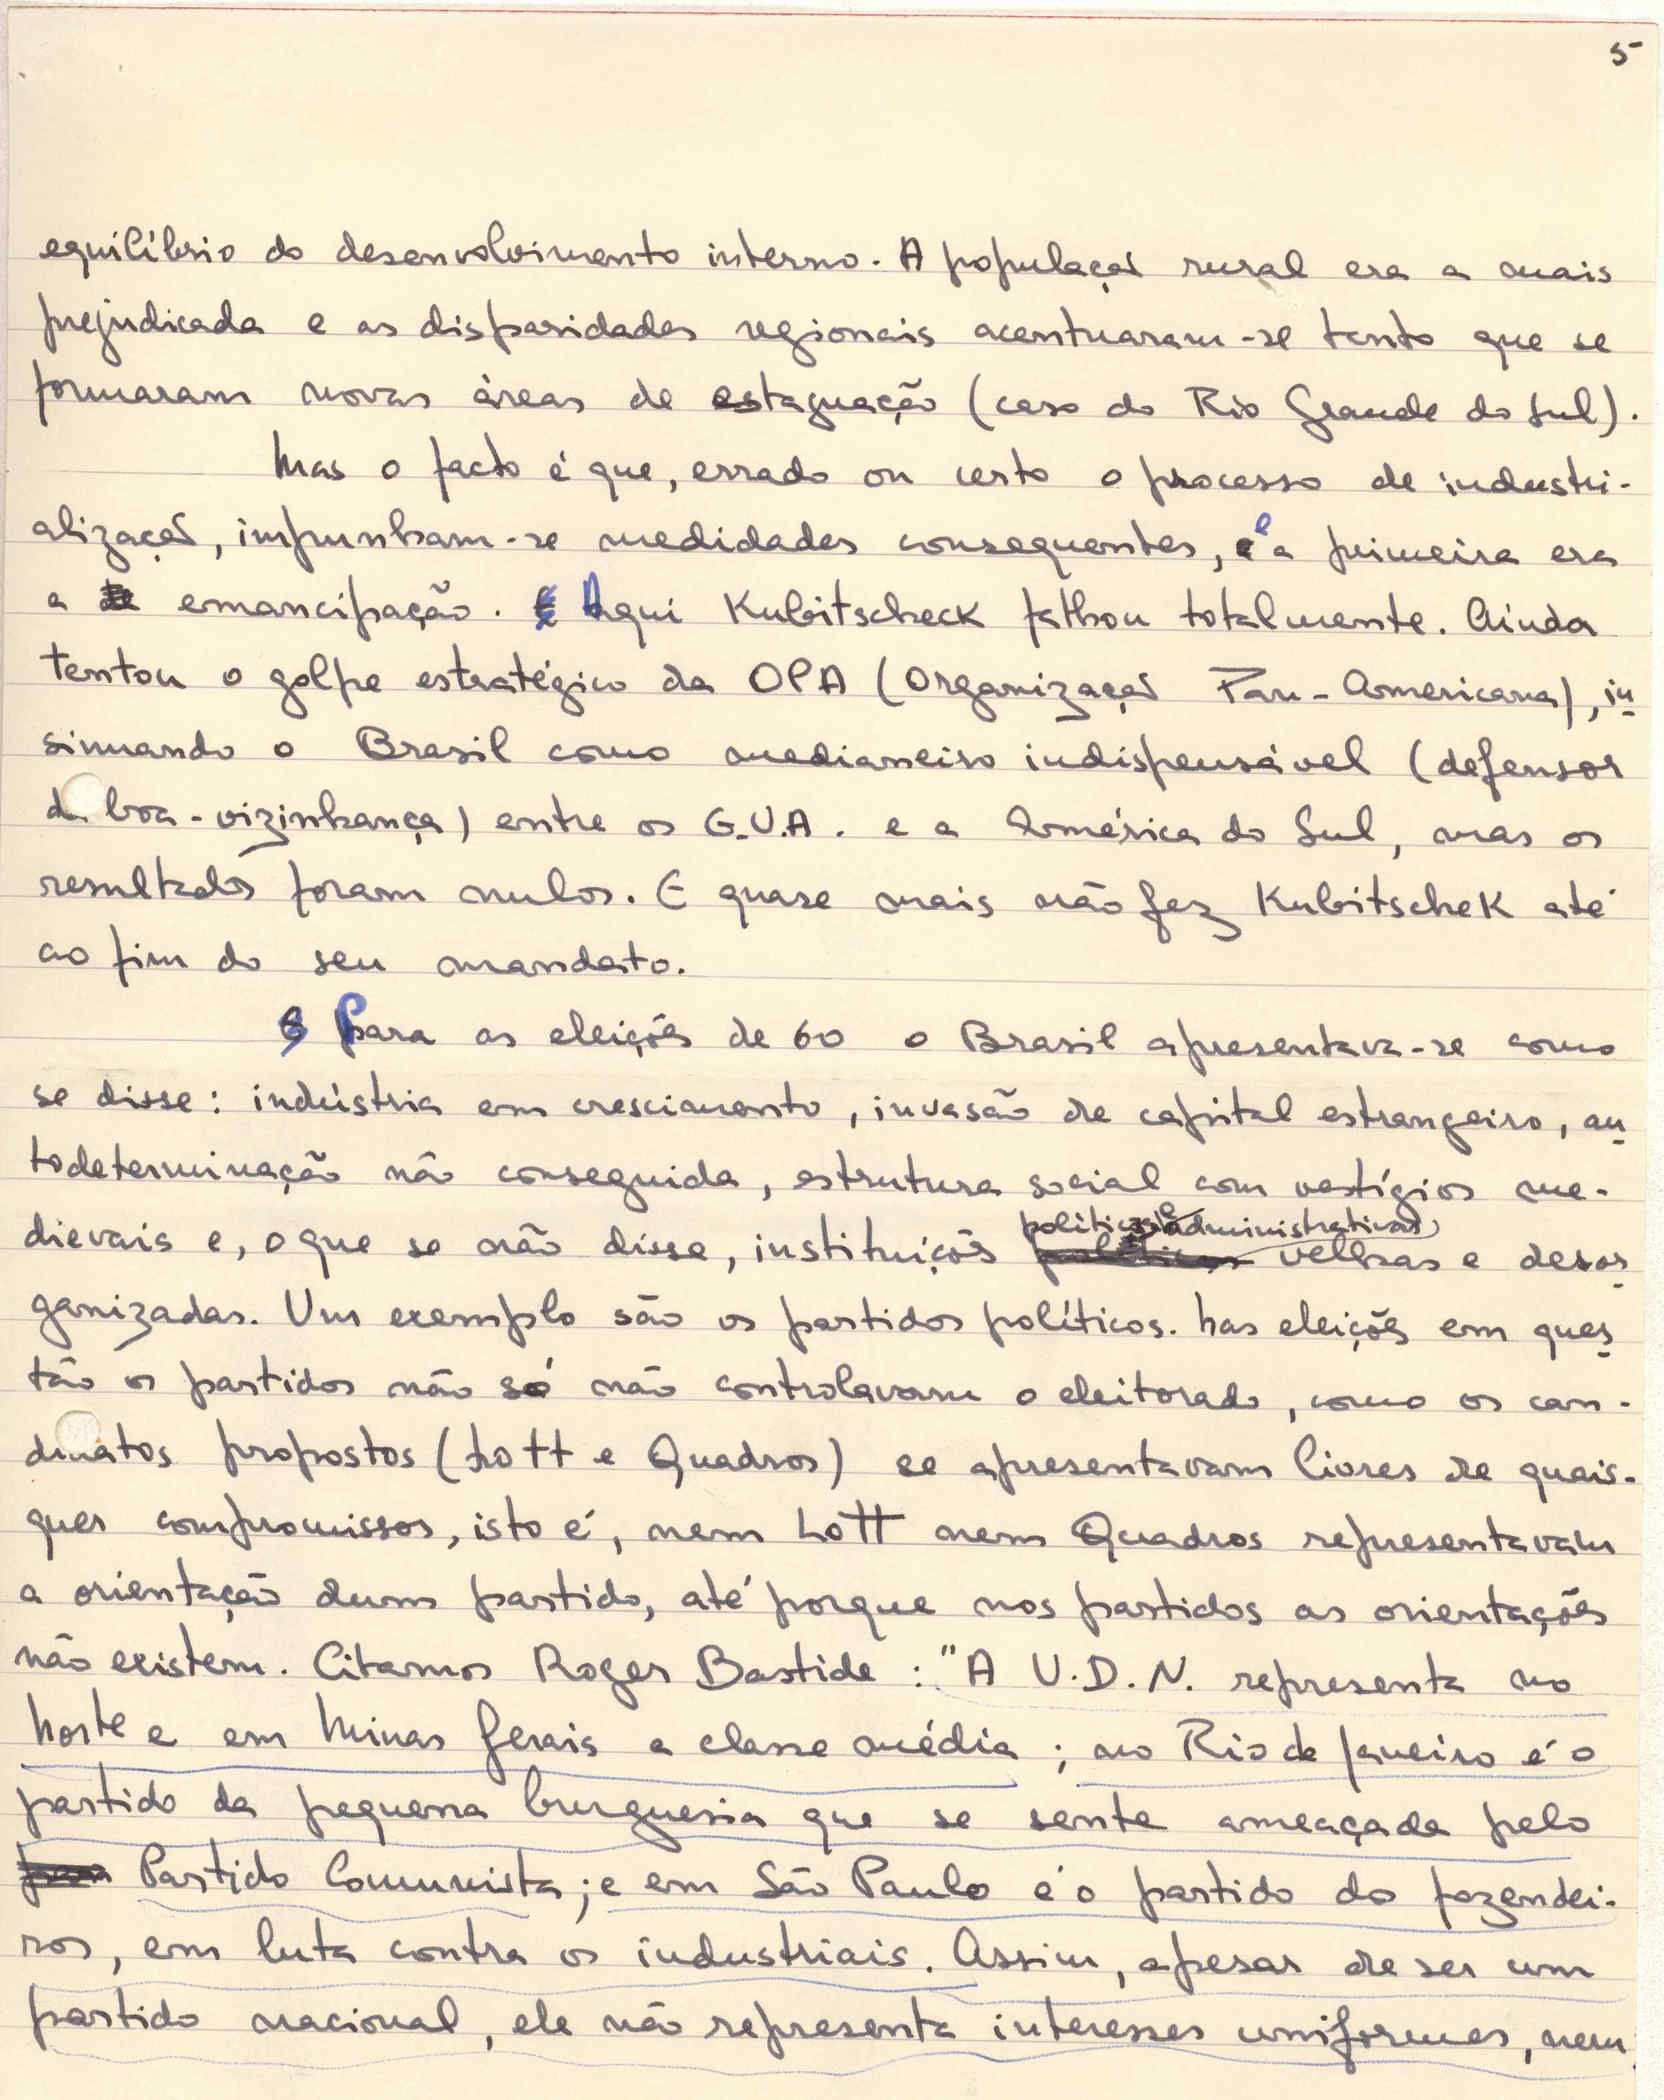 5
equilíbrio do desenvolvimento interno. A população rural era a mais
prejudicada e as disparidades regionais acentuaram-se tanto que se
formaram novas áreas de estagnação (caso do Rio Grande do Sul).
Mas o facto é que, errado ou certo o processo de industri-
alização, impunham-se medidades consequentes, e a primeira era
a emancipação. Aqui Kubitscheck falhou totalmente. Ainda
tentou o golpe estratégico da OPA (Organização Pan-Americana), in
sinuando o Brasil como medianeiro indispensável (defensor
da boa-vizinhança) entre os E.U.A. e a América do Sul, mas os
resultados foram nulos. E quase mais não fez Kubitschek até
ao fim do seu mandato.
Para as eleições de 60 o Brasil apresentava-se como
se disse: indústria em crescimento, invasão de capital estrangeiro, au
todeterminação não conseguida, estrutura social com vestígios me-
dievais e, o que se não disse, instituições políticas e administrativas velhas e desor
ganizadas. Um exemplo são os partidos políticos. Nas eleições em ques
tão os partidos não só não controlavam o eleitorado, como os can-
didatos propostos (Lott e Quadros) se apresentavam livres de quais-
quer compromissos, isto é, nem Lott nem Quadros representavam
a orientação dum partido, até porque nos partidos as orientações
não existem. Citamos Roger Bastide: "A U.D.N. representa no
Norte e em Minas Gerais a classe média; no Rio de Janeiro é o
partido da pequena burguesia que se sente ameaçada pelo
Partido Comunista; e em São Paulo é o partido do fazendei-
ros, em luta contra os industriais. Assim, apesar de ser um
partido nacional, ele não representa interesses uniformes, nem